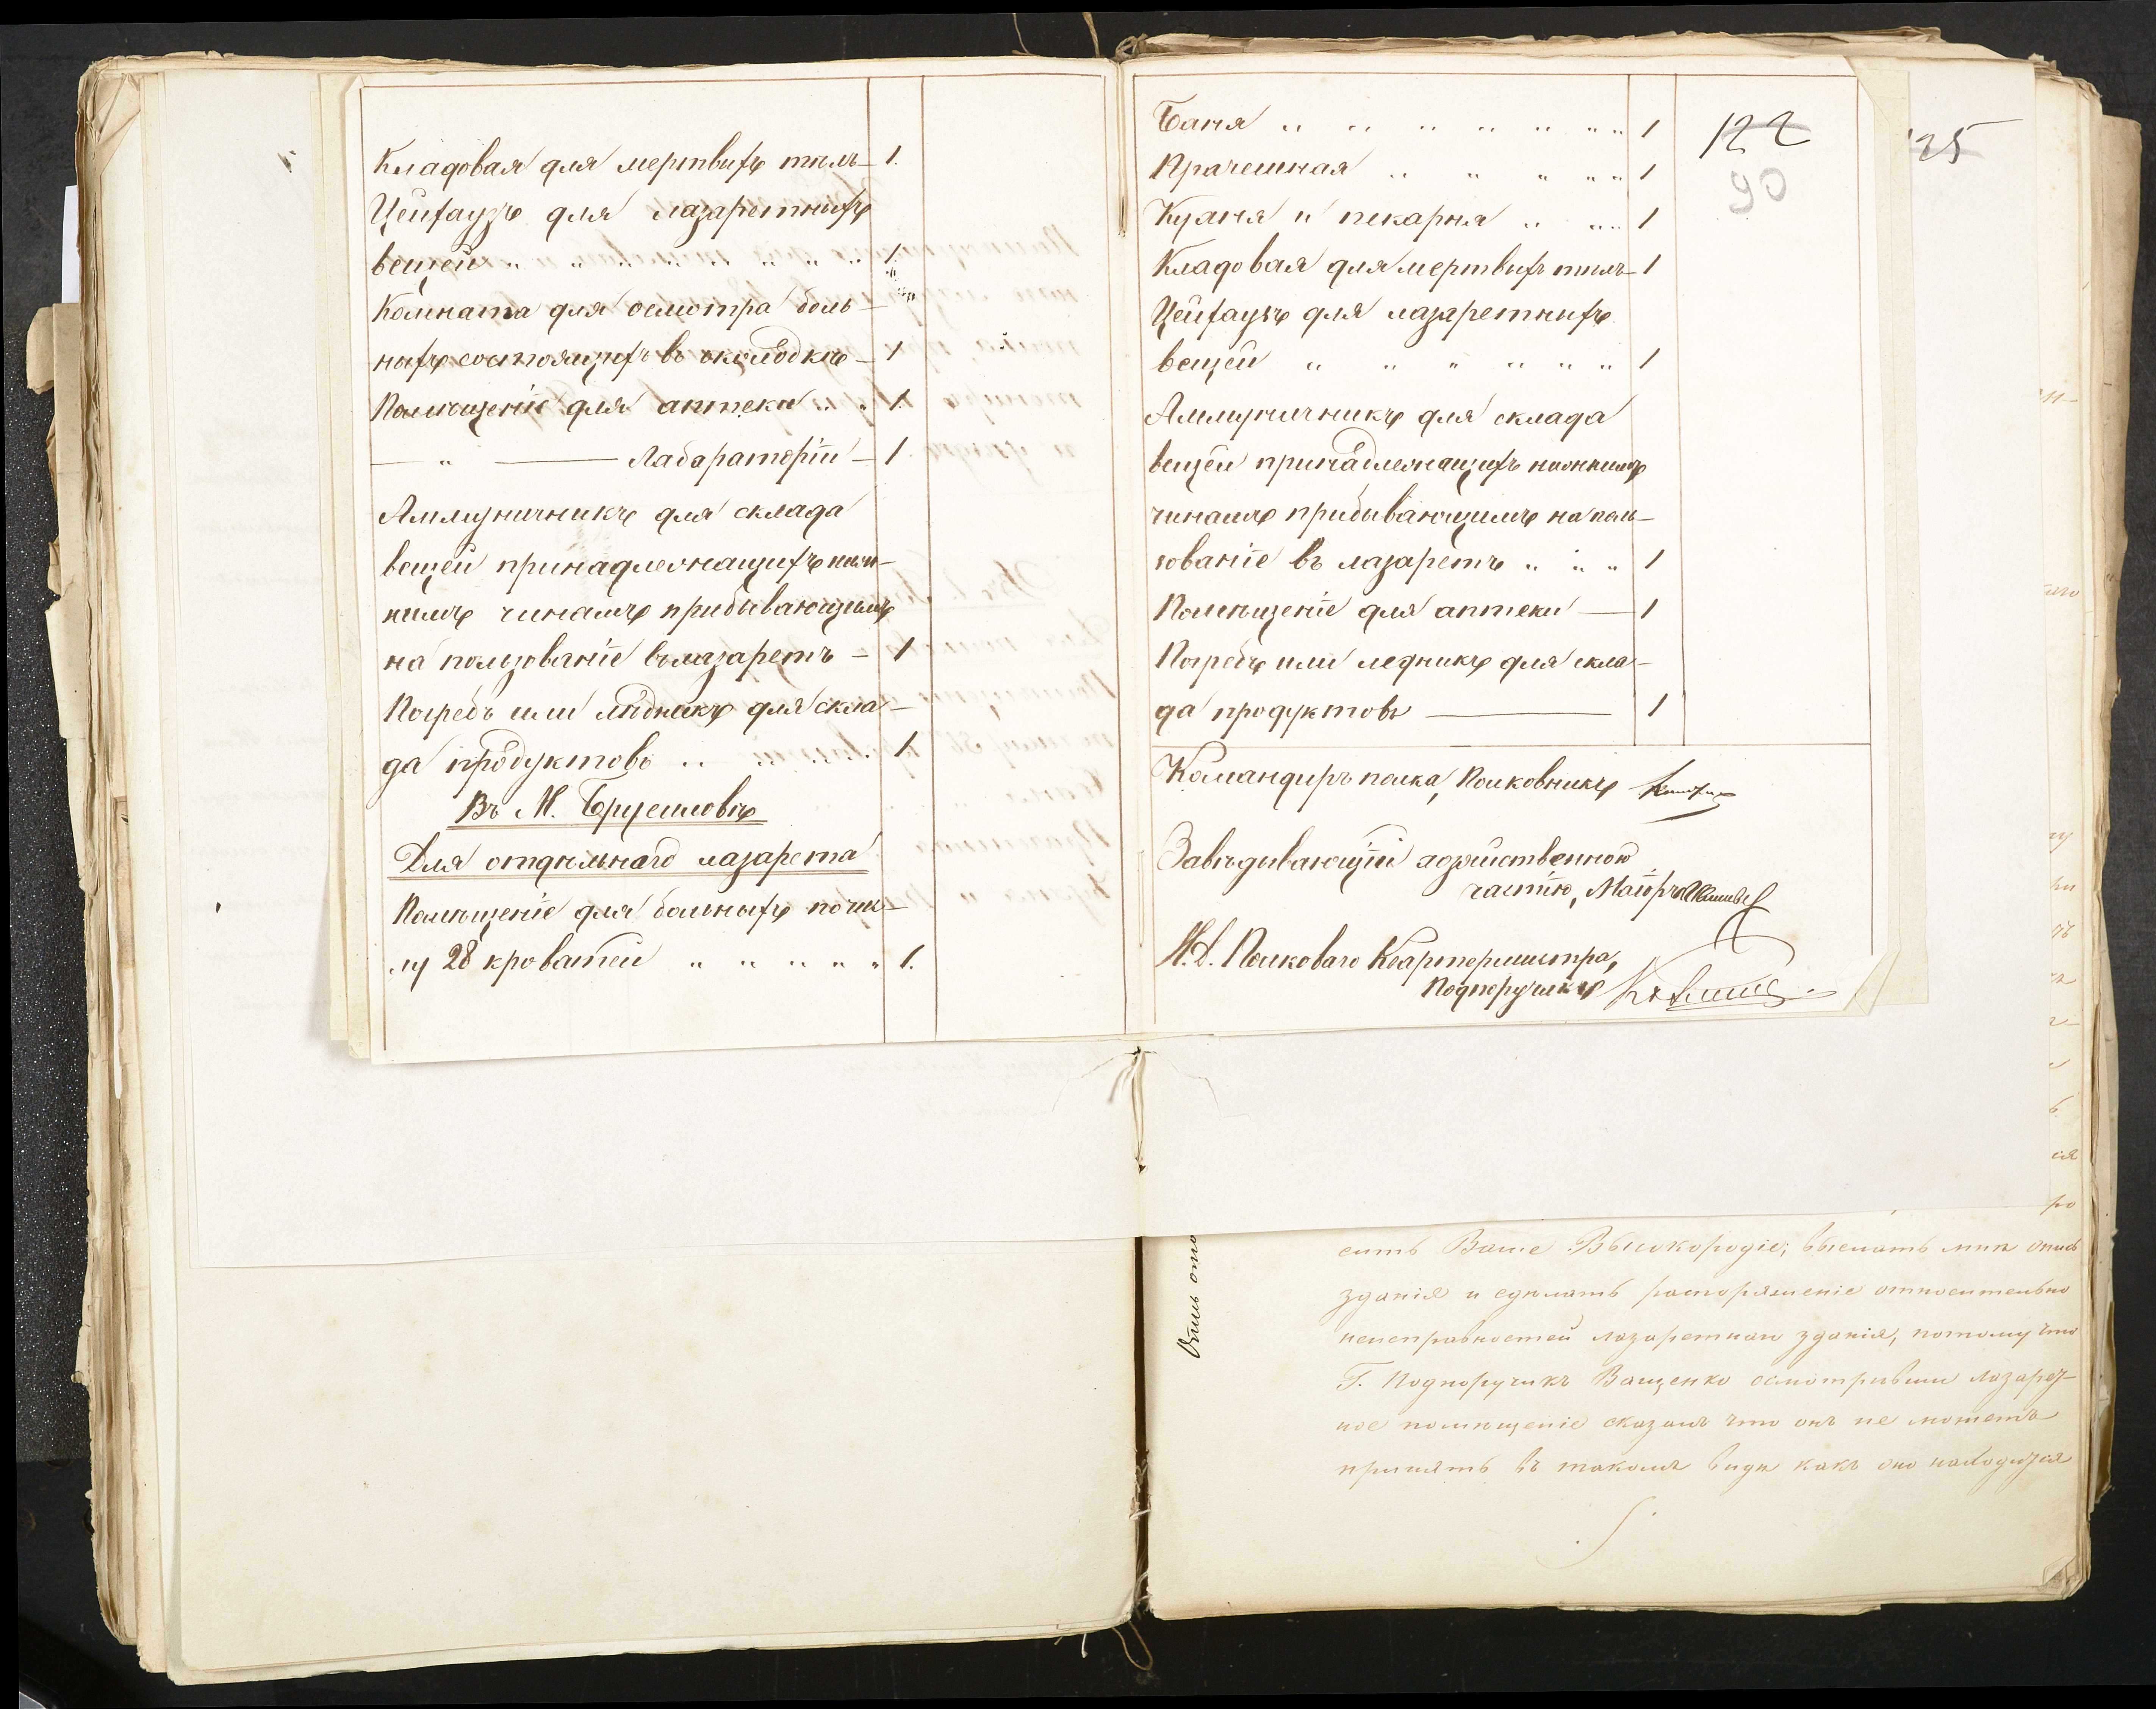 Кладовая для мертвыхъ тѣлъ — 1.
Цейхаузъ для лазаретныхъ
вещей " " " " " " " " 1.
Комната для осмотра боль-
ныхъ состоящихъ въ околодкѣ — 1
Помѣщеніе для аптеки " 1.
— " — Лабараторіи — 1
Аммуничникъ для склада
вещей принадлежащихъ ниж-
нимъ чинамъ прибывающимъ
на ползованіе въ лазаретъ — 1
Погребъ или лѣдникъ для скла-
да продуктовъ " " " 1.
Въ М. Брусиловѣ
Для отдѣльнаго лазарета
Помѣщеніе для больныхъ по чис-
лу 28 кроватей " " " " " 1.
Баня " " " " " " " 1
Прачешная " " " " " 1
Кухня и пекарня " " " 1
Кладовая для мертвыхъ тѣлъ — 1
Цейхаузъ для лазаретныхъ
вещей " " " " " " 1
Аммуничникъ для склада
вещей принадлежащихъ нижнимъ
чинамъ прибывающимъ на поль-
зованіе въ лазаретъ " " " 1
Помѣщеніе для аптеки — 1
Погребъ или ледникъ для скла-
да продуктовъ — 1
122
90
125
Командиръ полка, Полковникъ
Завѣдывающій хозяйственною
частію, Маіоръ
И.д. Полковаго Квартермистра,
Подпоручикъ
сить Ваше Высокородіе, выслать мнѣ опись
зданія и сдѣлать распоряженіе относительно
неисправностей лазаретнаго зданія, потому что
Г. Подпоручикъ Ващенко осмотрѣвши лазарет-
ное помѣщеніе сказалъ что онъ не можетъ
принять въ такомъ видѣ какъ оно находится